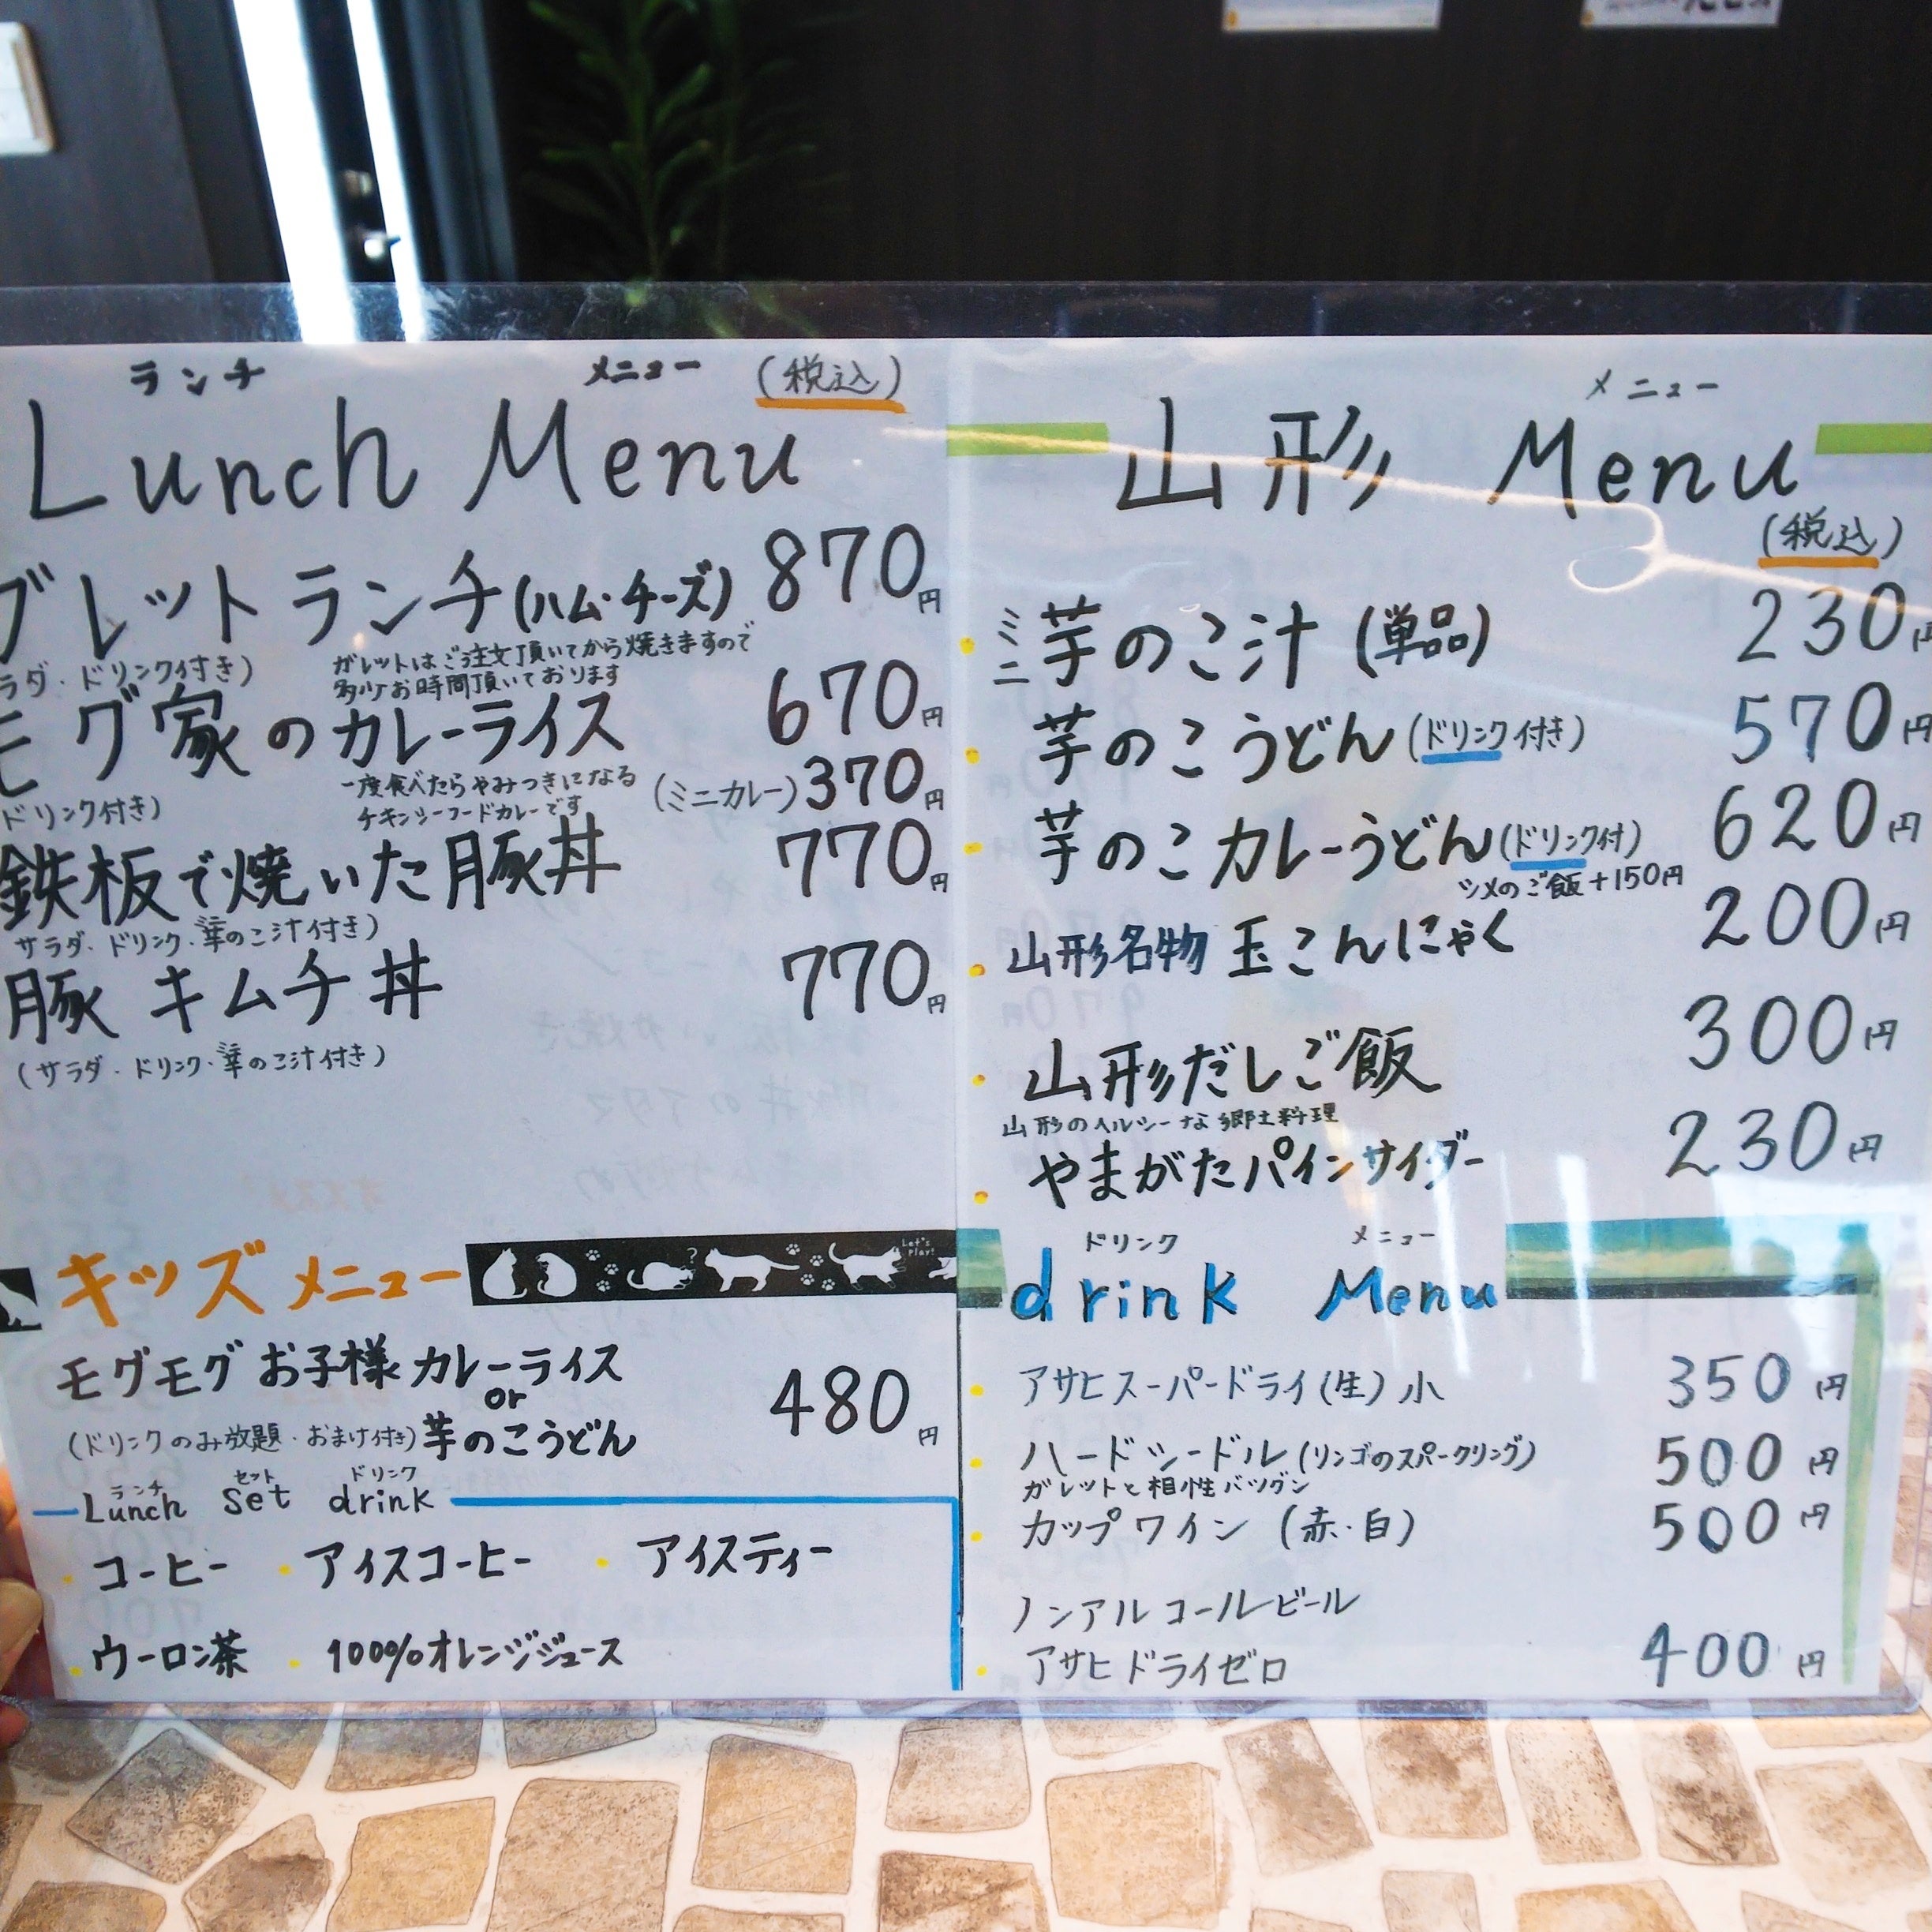 ランチ メニュー (税込)
Lunch Menu
ブレットランチ(ハム・チーズ) 870円
ラダ・ドリンク付き)
ガレットはご注文頂いてから焼きますので
多少お時間頂いております
モグ家のカレーライス 670円
ドリンク付き)
一度食べたらやみつきになる
チキンシーフードカレーです
(ミニカレー) 370円
鉄板で焼いた豚丼 770円
サラダ・ドリンク・ミニ芋のこ汁付き)
豚キムチ丼 770円
(サラダ・ドリンク・ミニ芋のこ汁付き)
キッズメニュー
Let's play!
モグモグお子様カレーライス
or
(ドリンクのみ放題・おまけ付き)芋のこうどん 480円
ランチ セット ドリンク
Lunch set drink
コーヒー ・アイスコーヒー ・アイスティー
・ウーロン茶 ・100%オレンジジュース
メニュー
山形 Menu
(税込)
・ミニ芋のこ汁(単品) 230円
・芋のこうどん(ドリンク付き) 570円
・芋のこカレーうどん(ドリンク付) 620円
シメのご飯+150円
・山形名物 玉こんにゃく 200円
・山形だしご飯 300円
山形のヘルシーな郷土料理
・やまがたパインサイダー 230円
ドリンク メニュー
drink Menu
・アサヒスーパードライ(生)小 350円
・ハードシードル(リンゴのスパークリング) 500円
ガレットと相性バツグン
・カップワイン(赤・白) 500円
ノンアルコールビール
・アサヒドライゼロ 400円